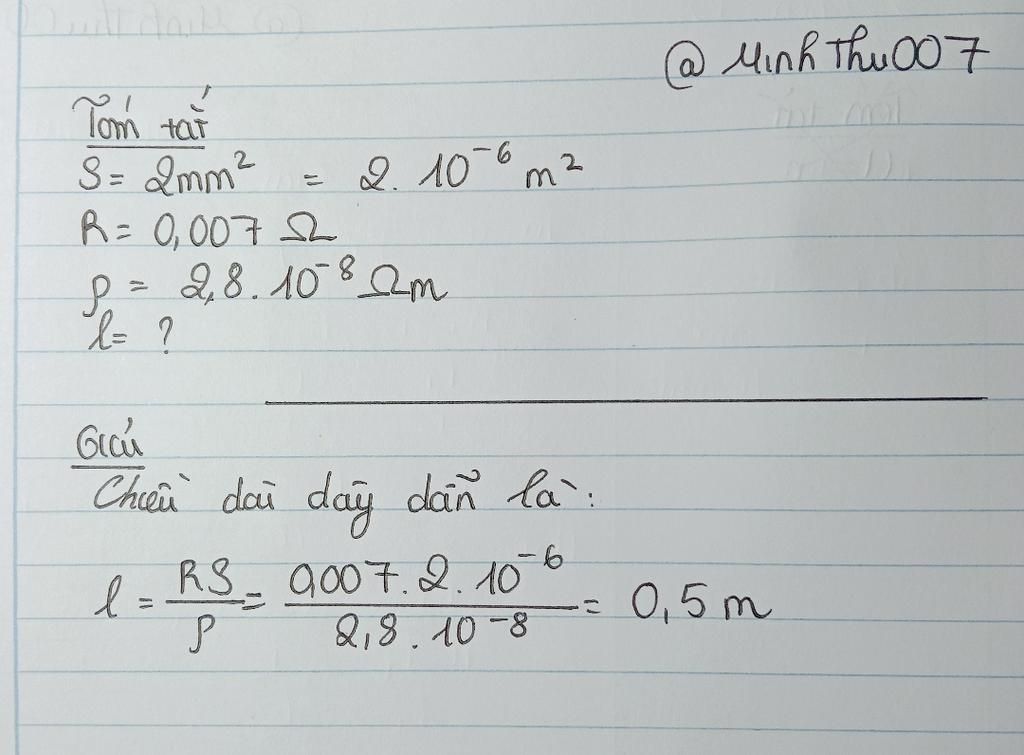 @ MinhThu007
Tóm tắt
S = 2mm² = 2. 10⁻⁶ m²
R = 0,007 Ω
ρ = 2,8. 10⁻⁸ Ωm
l = ?
Giải
Chiều dài dây dẫn là:
l = RS/ρ = 0,007. 2. 10⁻⁶/2,8. 10⁻⁸ = 0,5 m